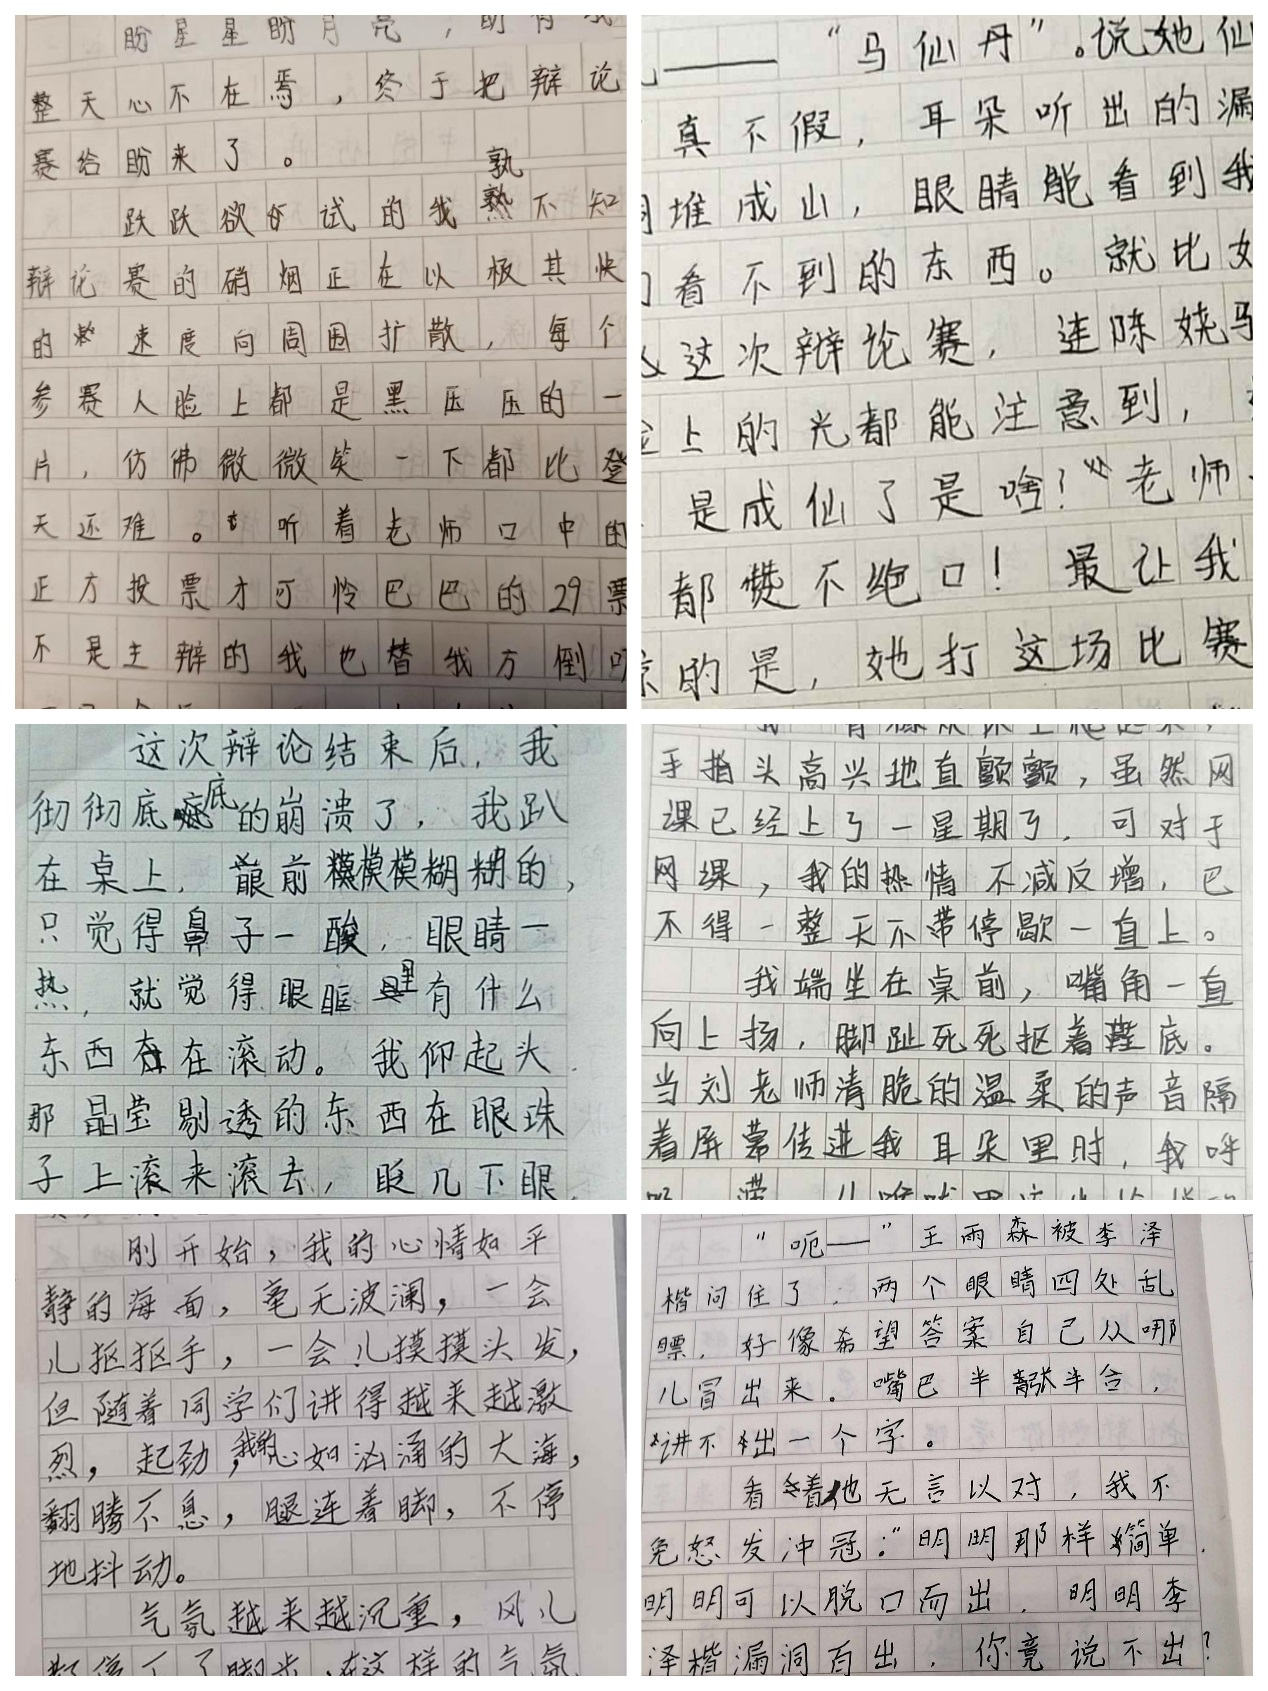 盼星星盼月亮，盼有
整天心不在焉，终于把辩论
赛给盼来了。
孰
跃跃欲试的我熟不知
辩论赛的硝烟正在以极其快
的速度向周围扩散，每个
参赛人脸上都是黑压压的一
片，仿佛微微笑一下都比登
天还难。听着老师口中的
正方投票才可怜巴巴的29票
不是主辩的我也替我方倒
——“马仙丹”。说她仙
真不假，耳朵听出的漏
堆成山，眼睛能看到我
看不到的东西。就比如
这次辩论赛，连陈娆马
上的光都能注意到，
是成仙了是啥！老师
都赞不绝口！最让我
的是，她打这场比赛
这次辩论结束后，我
彻彻底底的崩溃了，我趴
在桌上，眼前模模模糊糊的，
只觉得鼻子一酸，眼睛一
热，就觉得眼眶里有什么
东西在在滚动。我仰起头
那晶莹剔透的东西在眼珠
子上滚来滚去，眨几下眼，
手指头高兴地直颤颤，虽然网
课已经上了一星期了，可对于
网课，我的热情不减反增，巴
不得一整天不带停歇一直上。
我端坐在桌前，嘴角一直
向上扬，脚趾死死抠着鞋底。
当刘老师清脆的温柔的声音隔
着屏幕传进我耳朵里时，我呼
刚开始，我的心情如平
静的海面，毫无波澜，一会
儿抠抠手，一会儿摸摸头发，
但随着同学们讲得越来越激
烈，起劲，我的心如汹涌的大海，
翻腾不息，腿连着脚，不停
地抖动。
气氛越来越沉重，风儿
都停下了脚步，在这样的气氛
“呃——”王雨森被李泽
楷问住了，两个眼睛四处乱
瞟，好像希望答案自己从哪
儿冒出来。嘴巴半张半合，
讲不出一个字。
看着他无言以对，我不
免怒发冲冠：“明明那样简单，
明明可以脱口而出，明明李
泽楷漏洞百出，你竟说不出？